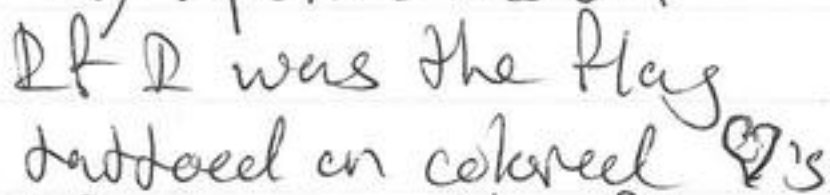 RFR was the flag
tattoed on colored ♡'s